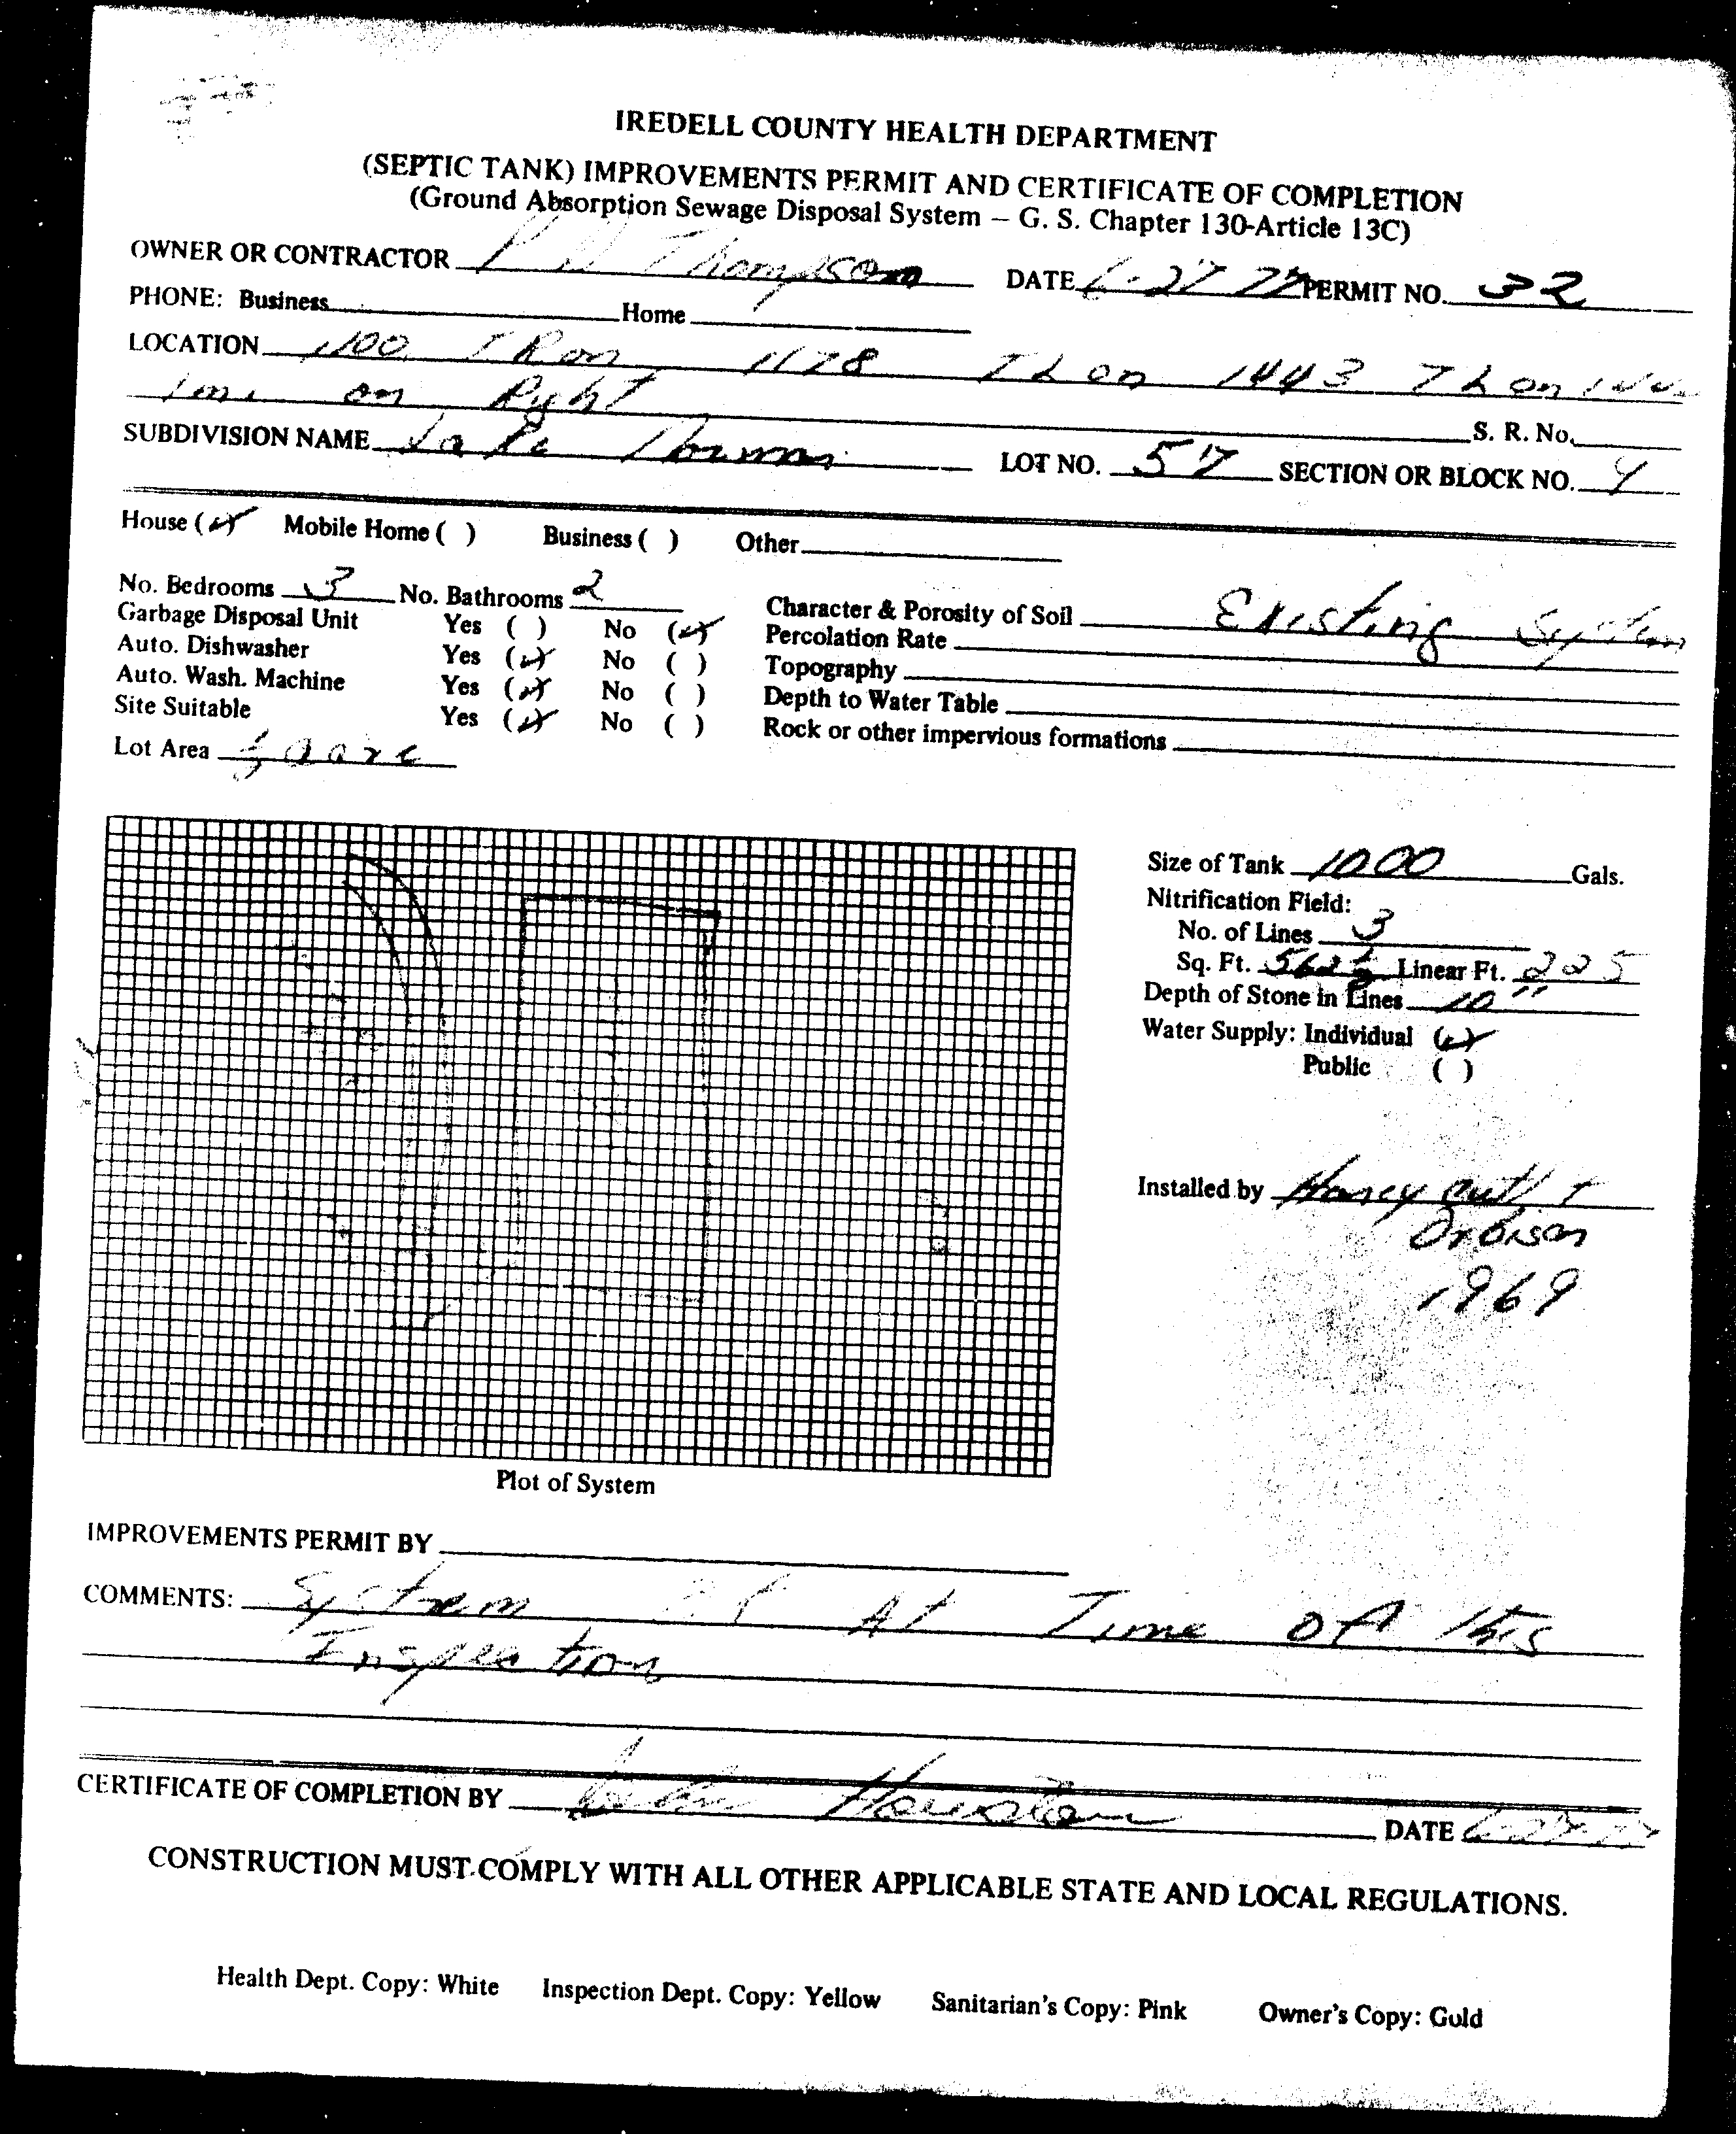 IREDELL COUNTY HEALTH DEPARTMENT
(SEPTIC TANK) IMPROVEMENTS PERMIT AND CERTIFICATE OF COMPLETION
(Ground Absorption Sewage Disposal System — G. S. Chapter 130-Article 13C)
OWNER OR CONTRACTOR Thompson DATE 6-27 77 PERMIT NO. 32
PHONE: Business Home
LOCATION 1100 T R on 1178 T L on 1443 T L on
1 mi on Right
S. R. No.
SUBDIVISION NAME Lake Norman LOT NO. 57 SECTION OR BLOCK NO. 4
House (✓) Mobile Home ( ) Business ( ) Other
No. Bedrooms 3 No. Bathrooms 2 Character & Porosity of Soil Existing System
Garbage Disposal Unit Yes ( ) No (✓) Percolation Rate
Auto. Dishwasher Yes (✓) No ( ) Topography
Auto. Wash. Machine Yes (✓) No ( ) Depth to Water Table
Site Suitable Yes (✓) No ( ) Rock or other impervious formations
Lot Area acre
Size of Tank 1000 Gals.
Nitrification Field:
No. of Lines 3
Sq. Ft. 562½ Linear Ft. 225
Depth of Stone in Lines 10"
Water Supply: Individual (✓)
Public ( )
Installed by
Orbison
1969
Plot of System
IMPROVEMENTS PERMIT BY
COMMENTS: System At Time of this
Inspection
CERTIFICATE OF COMPLETION BY Houston DATE
CONSTRUCTION MUST COMPLY WITH ALL OTHER APPLICABLE STATE AND LOCAL REGULATIONS.
Health Dept. Copy: White Inspection Dept. Copy: Yellow Sanitarian's Copy: Pink Owner's Copy: Gold